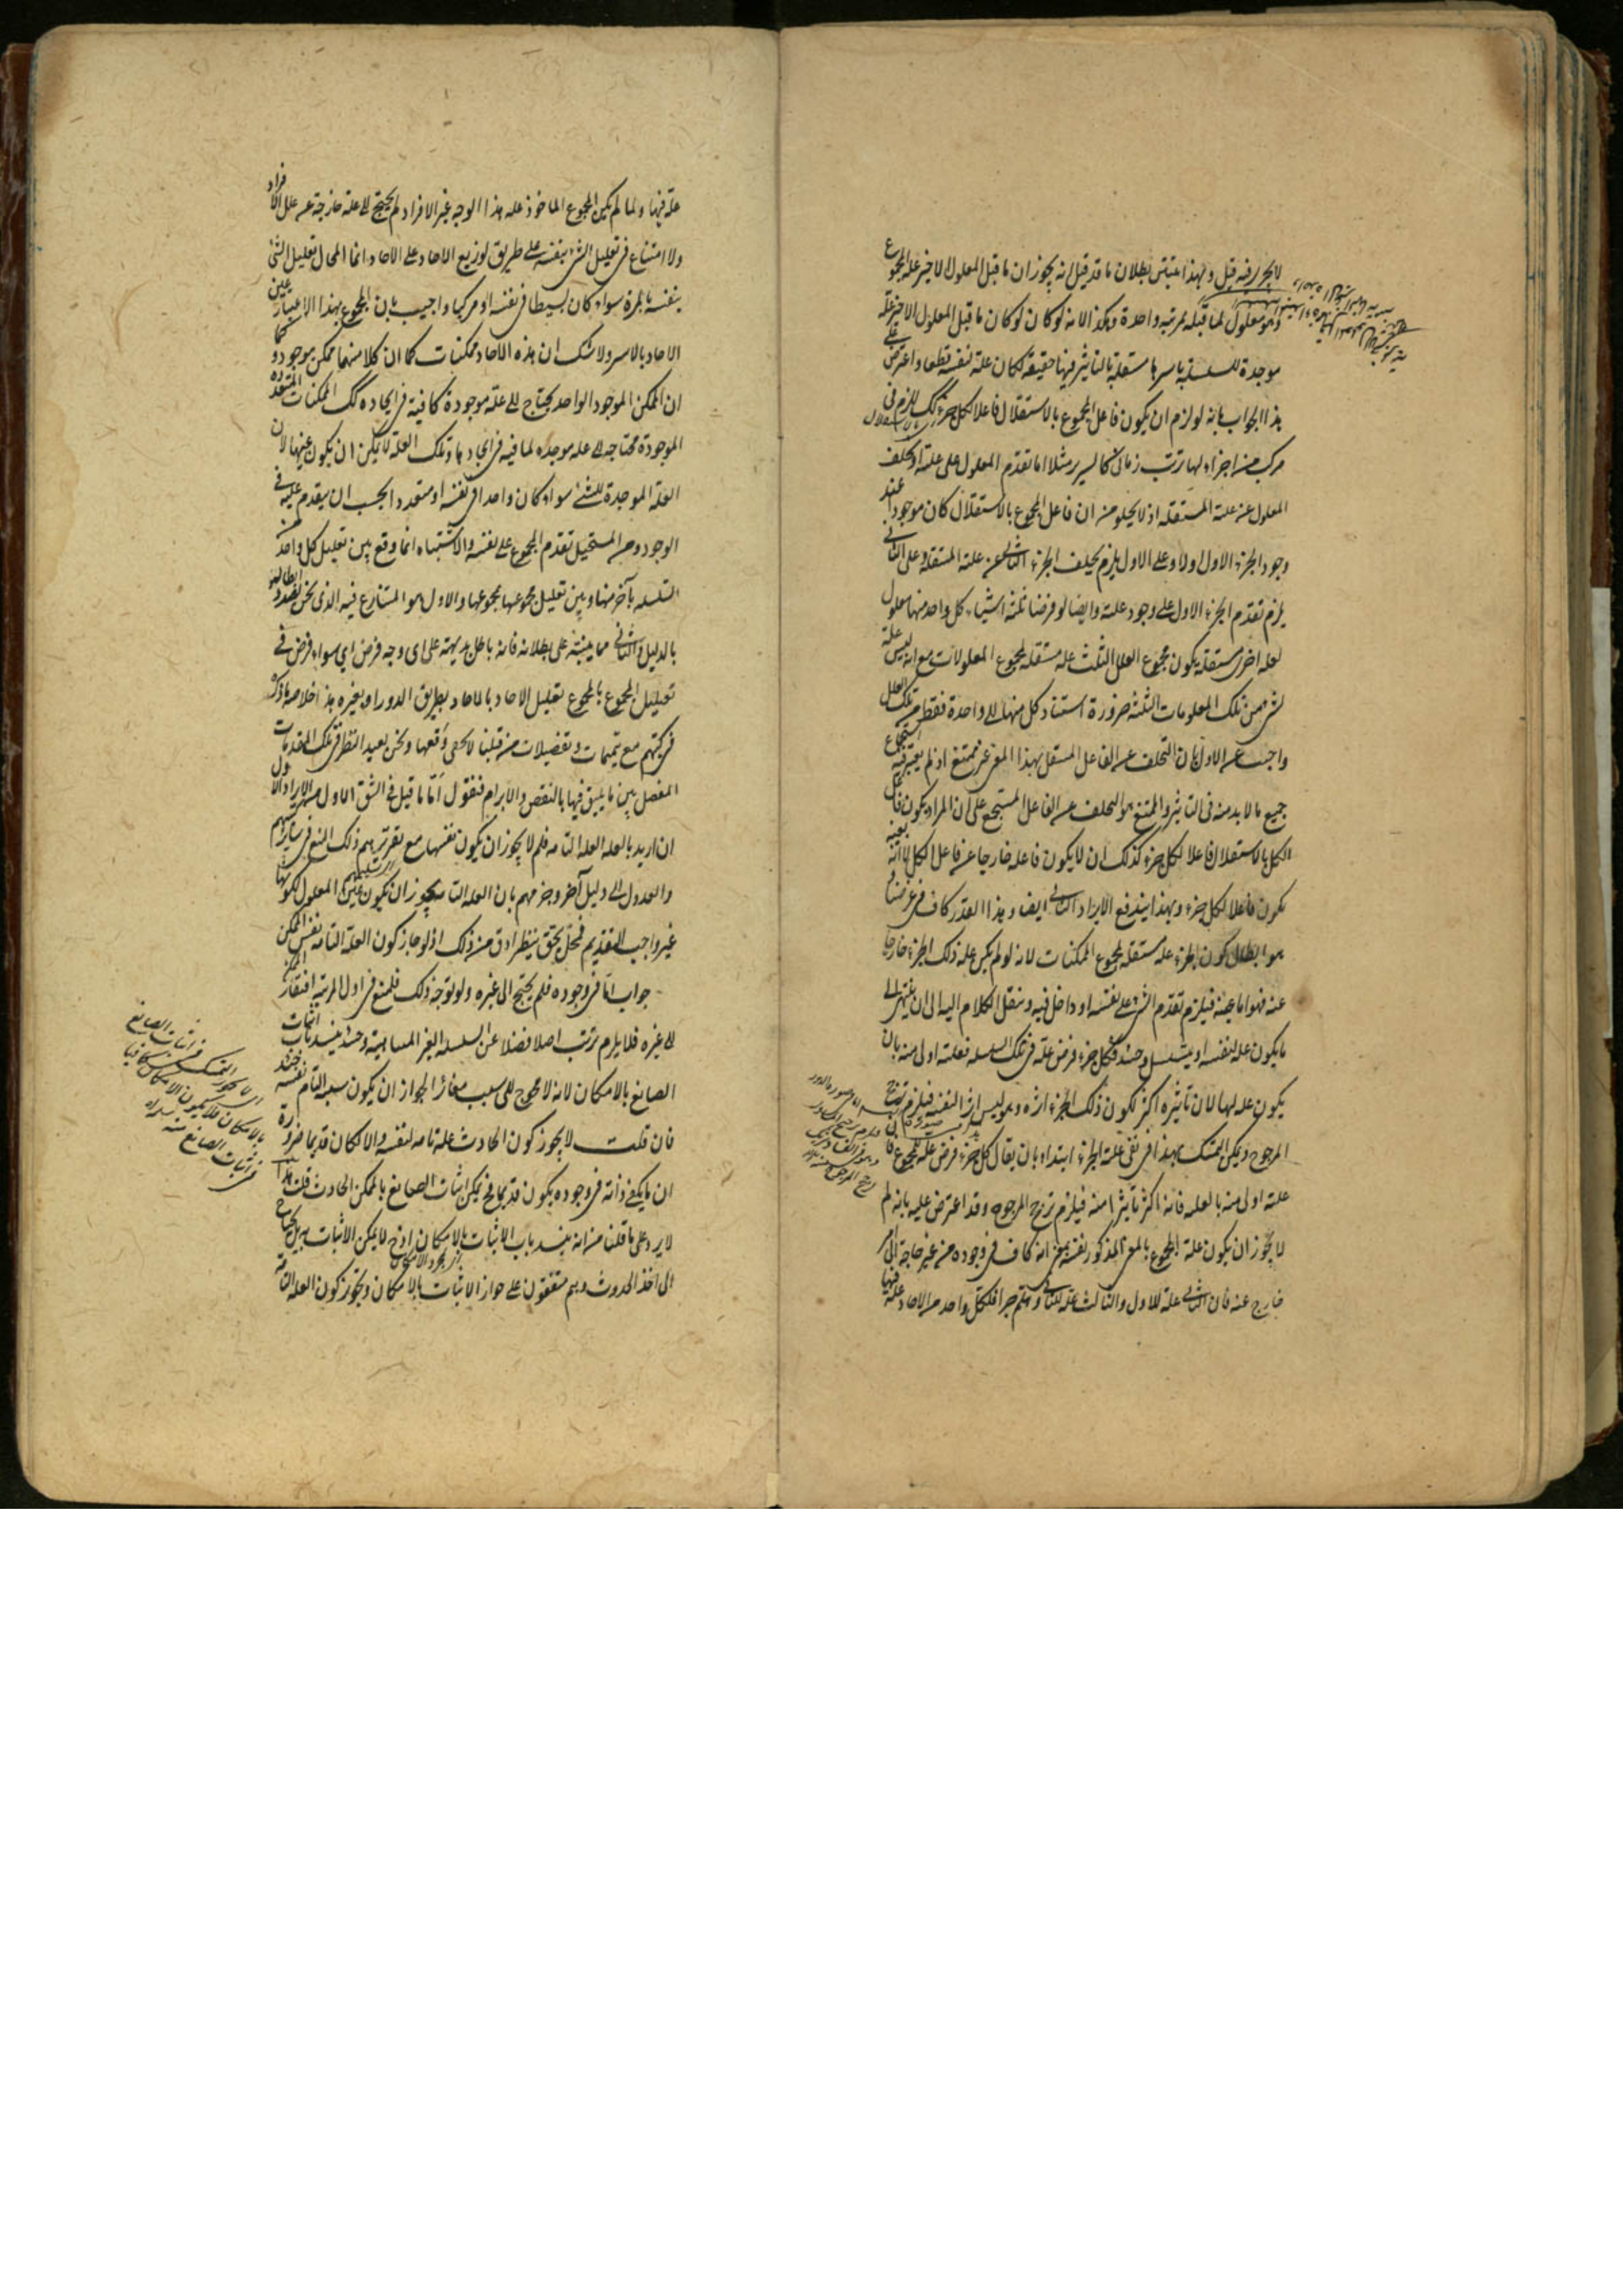 لا يجوز فيه قيل وبهذا يتبين بطلان ما قد قيل انه يجوز ان ما قبل المعلول الاخير علة المجموع
وهو معلول لما قبله بمرتبة واحدة وهكذا لانه لو كان ما قبل المعلول الاخير علة
موجدة للسلسلة باسرها مستقلة بالتاثير فيها حقيقة لكان علة لنفسه قطعا واعترض على
هذا الجواب بانه لو لزم ان يكون فاعل المجموع بالاستقلال فاعلا لكل جزء لزم في
مركب من اجزاء لها ترتب زماني كالسرير مثلا اما تقدم المعلول على علته او تخلف
المعلول عن علته المستقلة اذ لا يخلو من ان فاعل المجموع بالاستقلال كان موجودا عند
وجود الجزء الاول او لا وعلى الاول يلزم تخلف الجزء الثاني عن علته المستقلة وعلى الثاني
يلزم تقدم الجزء الاول على وجود علته وايضا لو فرضنا ثلثة اشياء كل واحد منها معلول
لعلة اخرى مستقلة يكون مجموع العلل الثلث علة مستقلة لمجموع المعلولات مع انه ليس علة
لشيء من تلك المعلومات الثلثة ضرورة استناد كل منها الى واحدة فقط من تلك العلل
واجيب عن الاول بان التخلف عن الفاعل المستقل بهذا المعنى غير ممتنع اذ لم يعتبر فيه استجماع
جميع ما لا بد منه في التاثير والممتنع هو التخلف عن الفاعل المستجمع على ان المراد بكون فاعل
الكل بالاستقلال فاعلا لكل جزء كذلك ان لا يكون فاعله خارجا عن فاعل الكل لا انه بعينه
يكون فاعلا لكل جزء وبهذا يندفع الايراد الثاني ايضا وهذا القدر كاف في غرضنا
هو ابطال كون الجزء علة مستقلة لمجموع الممكنات لانه لو لم يكن علة ذلك الجزء خارجا
عنه فهو اما عينه فيلزم تقدم الشيء على نفسه او داخل فيه وننقل الكلام اليه الى ان ينتهي الى
ما يكون علة لنفسه او يتسلسل وحينئذ فكل جزء فرض علة في تلك السلسلة فعلته اولى منه بان
يكون علة لها لان تاثيره اكثر لكون ذلك الجزء اثره وهو ليس اثرا لنفسه فيلزم ترجيح
المرجوح ويمكن التمسك بهذا في نفي علة الجزء ابتداء بان يقال كل جزء فرض علة للمجموع فا
علته اولى منه بالعلية فانه اكثر تاثيرا منه فيلزم ترجيح المرجوح وقد اعترض عليه بانه لم
لا يجوز ان يكون علة المجموع بالمعنى المذكور نفسه بمعنى انه كاف في وجوده من غير حاجة الى امر
خارج عنه فان الثاني علة للاول والثالث علة للثاني وهلم جرا فلكل واحد من الاحاد علة فيها
علة فيها ولما لم يكن المجموع الماخوذ على هذا الوجه غير الافراد لم يحتج الى علة خارجة عن علل الافراد
ولا امتناع في تعليل الشيء بنفسه على طريق توزيع الاحاد على الاحاد انما المحال تعليل الشيء
بنفسه بالمرة سواء كان بسيطا في نفسه او مركبا واجيب بان المجموع بهذا الاعتبار عين
الاحاد بالاسر ولا شك ان هذه الاحاد ممكنات كما ان كلا منها ممكن موجود وكما
ان الممكن الموجود الواحد يحتاج الى علة موجودة كافية في ايجاده كك الممكنات المتعددة
الموجودة محتاجة الى علة موجدة لها فيه في ايجادها وتلك العلة لا يمكن ان يكون عينها لان
العلة الموجدة للشيء سواء كان واحدا في نفسه او متعددا يجب ان يتقدم عليه في
الوجود ومن المستحيل تقدم المجموع على نفسه والاشتباه انما وقع بين تعليل كل واحد من
السلسلة بآخر منها وبين تعليل مجموعها بمجموعها والاول هو المتنازع فيه الذي نحن بصدد ابطاله
بالدليل والثاني مما ينبه على بطلانه فانه باطل بديهة على اي وجه فرض اي سواء فرض في
تعليل المجموع بالمجموع تعليل الاحاد بالاحاد بطريق الدور او بغيره هذا خلاصة ما ذكر
في كتبهم مع تتميمات وتفصيلات من قبلنا لا يخفى وقعها ونحن نعيد النظر في تلك المقدمات
المفصل بين ما يليق فيها بالنقض والابرام فنقول اما ما قيل في الشق الاول من الايراد الاول
ان اريد بالعلة العلة التامة فلم لا يجوز ان يكون نفسها مع تقريرهم ذلك المنع في سائر كتبهم
والعدول الى دليل آخر وجزمهم بان العلة التامة يجوز ان يكون عين المعلول لكونها
غير واجب التقديم فمحل تحقق ينظر ادق من ذلك اذ لو جاز كون العلة التامة نفس الممكن
جواب انا في وجوده فلم يحتج الى غيره ولو توجه ذلك فلمنع في اول المرتبة افتقار الممكن
الى غيره فلا يلزم ترتب اصلا فضلا عن السلسلة الغير المتناهية وحينئذ ينسد باب اثبات
الصانع بالامكان لانه لا محوج الى سبب مغاير الجواز ان يكون سببه التام نفسه
فان قلت لا يجوز كون الحادث علة تامة لنفسه والا لكان قديما ضرورة
ان ما يكفي ذاته في وجوده يكون قديما فح يمكن اثبات الصانع بالممكن الحادث قلت هذا
لا يرد على ما قلنا من انه ينسد باب الاثبات بالامكان اذ ح لا يمكن الاثبات به بل يحتاج
الى اخذ الحدوث وهم متفقون على جواز الاثبات بالامكان وتجويز كون العلة التامة
اي لا يجوز التمسك في اثبات الصانع
بالامكان فلا يكون الامكان كافيا
في اثبات الصانع منه